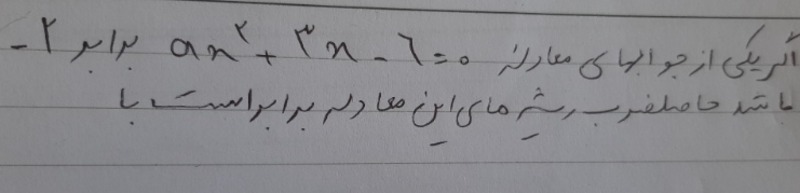 اگر یکی از جوابهای معادله ax² + ۳x - ۶ = ۰ برابر ۲-
باشد حاصلضرب ریشه های این معادله برابر است با